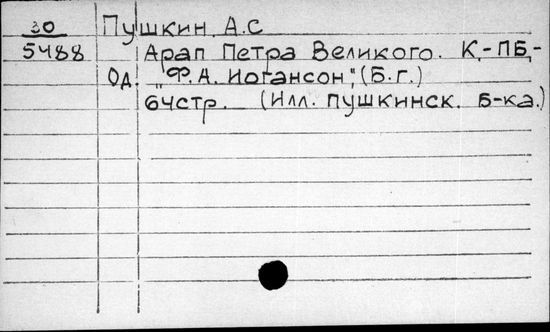 30 Пушкин, А.С
5488 Арап Петра Великого. К,-ПБ,-
Од. "Ф.А. Иогансон," (Б.г.)
64стр. (Илл. пушкинск. Б-ка.)